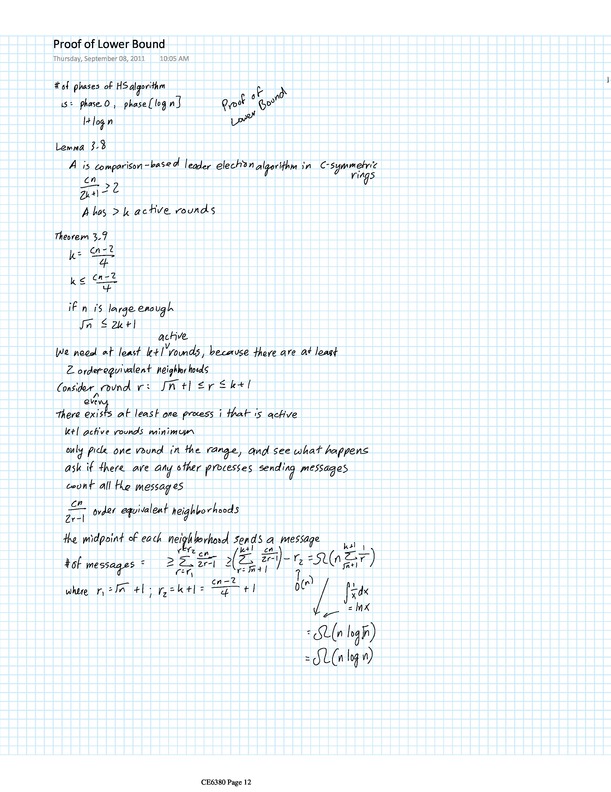 Proof of Lower Bound
Thursday, September 08, 2011 10:05 AM
# of phases of HS algorithm
is: phase 0, phase ⌈log n⌉
1+ log n
Proof of
Lower Bound
Lemma 3.8
A is comparison-based leader election algorithm in C-symmetric
rings
cn/2k+1 ≥ 2
A has > k active rounds
Theorem 3.9
k = cn-2/4
k ≤ cn-2/4
if n is large enough
√n ≤ 2k+1
active
We need at least k+1 ˅ rounds, because there are at least
2 order equivalent neighborhoods
Consider round r: √n +1 ≤ r ≤ k+1
^
every
There exists at least one process i that is active
k+1 active rounds minimum
only pick one round in the range, and see what happens
ask if there are any other processes sending messages
count all the messages
cn/2r-1 order equivalent neighborhoods
the midpoint of each neighborhood sends a message
# of messages = ≥ Σ_{r=r₁}^{r=r₂} cn/2r-1 ≥ (Σ_{r=√n+1}^{k+1} cn/2r-1) - r₂ = Ω(n Σ_{√n+1}^{k+1} 1/r)
↑
O(n)
where r₁=√n +1; r₂=k+1= cn-2/4 +1
∫ 1/x dx
= ln x
= Ω(n log √n)
= Ω(n log n)
CE6380 Page 12